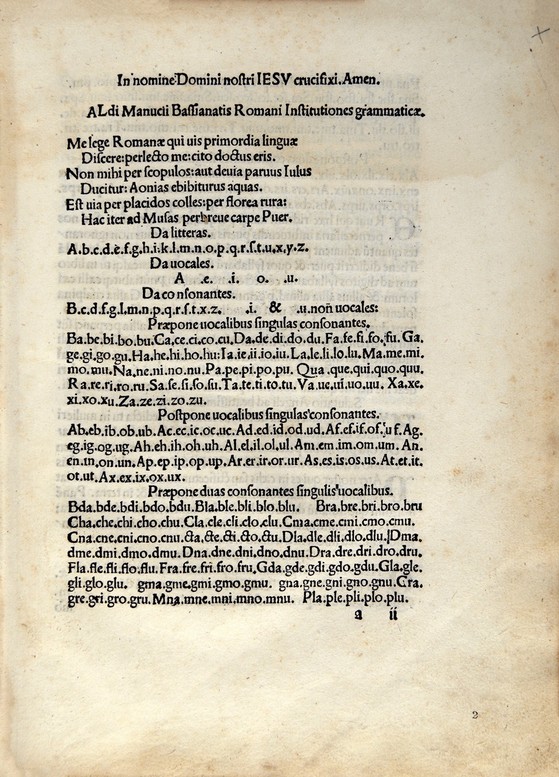 In nomine Domini nostri IESV crucifixi. Amen.
ALdi Manucii Bassianatis Romani Institutiones grammaticæ.
Me lege Romanæ qui uis primordia linguæ
Discere: perlecto me: cito doctus eris.
Non mihi per scopulos: aut deuia paruus Iulus
Ducitur: Aonias ebibiturus aquas.
Est uia per placidos colles: per florea rura:
Hac iter ad Musas perbreue carpe Puer.
Da litteras.
A.b.c.d.e.f.g.h.i.k.l.m.n.o.p.q.r.s.t.u.x.y.z.
Da uocales.
A .e. i. o. .u.
Da consonantes.
B.c.d.f.g.l.m.n.p.q.r.s.t.x.z. .i. & .u. non uocales:
Præpone uocalibus singulas consonantes.
Ba.be.bi.bo.bu. Ca.ce.ci.co.cu. Da.de.di.do.du. Fa.fe.fi.fo.fu. Ga.
ge.gi.go.gu. Ha.he.hi.ho.hu: Ia.ie.ii.io.iu. La.le.li.lo.lu. Ma.me.mi.
mo.mu. Na.ne.ni.no.nu. Pa.pe.pi.po.pu. Qua.que.qui.quo.quu.
Ra.re.ri.ro.ru. Sa.se.si.so.su. Ta.te.ti.to.tu. Va.ue.ui.uo.uu. Xa.xe.
xi.xo.xu. Za.ze.zi.zo.zu.
Postpone uocalibus singulas consonantes.
Ab.eb.ib.ob.ub. Ac.ec.ic.oc.uc. Ad.ed.id.od.ud. Af.ef.if.of.uf. Ag.
eg.ig.og.ug. Ah.eh.ih.oh.uh. Al.el.il.ol.ul. Am.em.im.om.um. An.
en.in.on.un. Ap.ep.ip.op.up. Ar.er.ir.or.ur. As.es.is.os.us. At.et.it.
ot.ut. Ax.ex.ix.ox.ux.
Præpone duas consonantes singulis uocalibus.
Bda.bde.bdi.bdo.bdu. Bla.ble.bli.blo.blu. Bra.bre.bri.bro.bru
Cha.che.chi.cho.chu. Cla.cle.cli.clo.clu. Cma.cme.cmi.cmo.cmu.
Cna.cne.cni.cno.cnu. cta.cte.cti.cto.ctu. Dla.dle.dli.dlo.dlu. Dma.
dme.dmi.dmo.dmu. Dna.dne.dni.dno.dnu. Dra.dre.dri.dro.dru.
Fla.fle.fli.flo.flu. Fra.fre.fri.fro.fru. Gda.gde.gdi.gdo.gdu. Gla.gle.
gli.glo.glu. gma.gme.gmi.gmo.gmu. gna.gne.gni.gno.gnu. Gra.
gre.gri.gro.gru. Mna.mne.mni.mno.mnu. Pla.ple.pli.plo.plu.
a ii
2